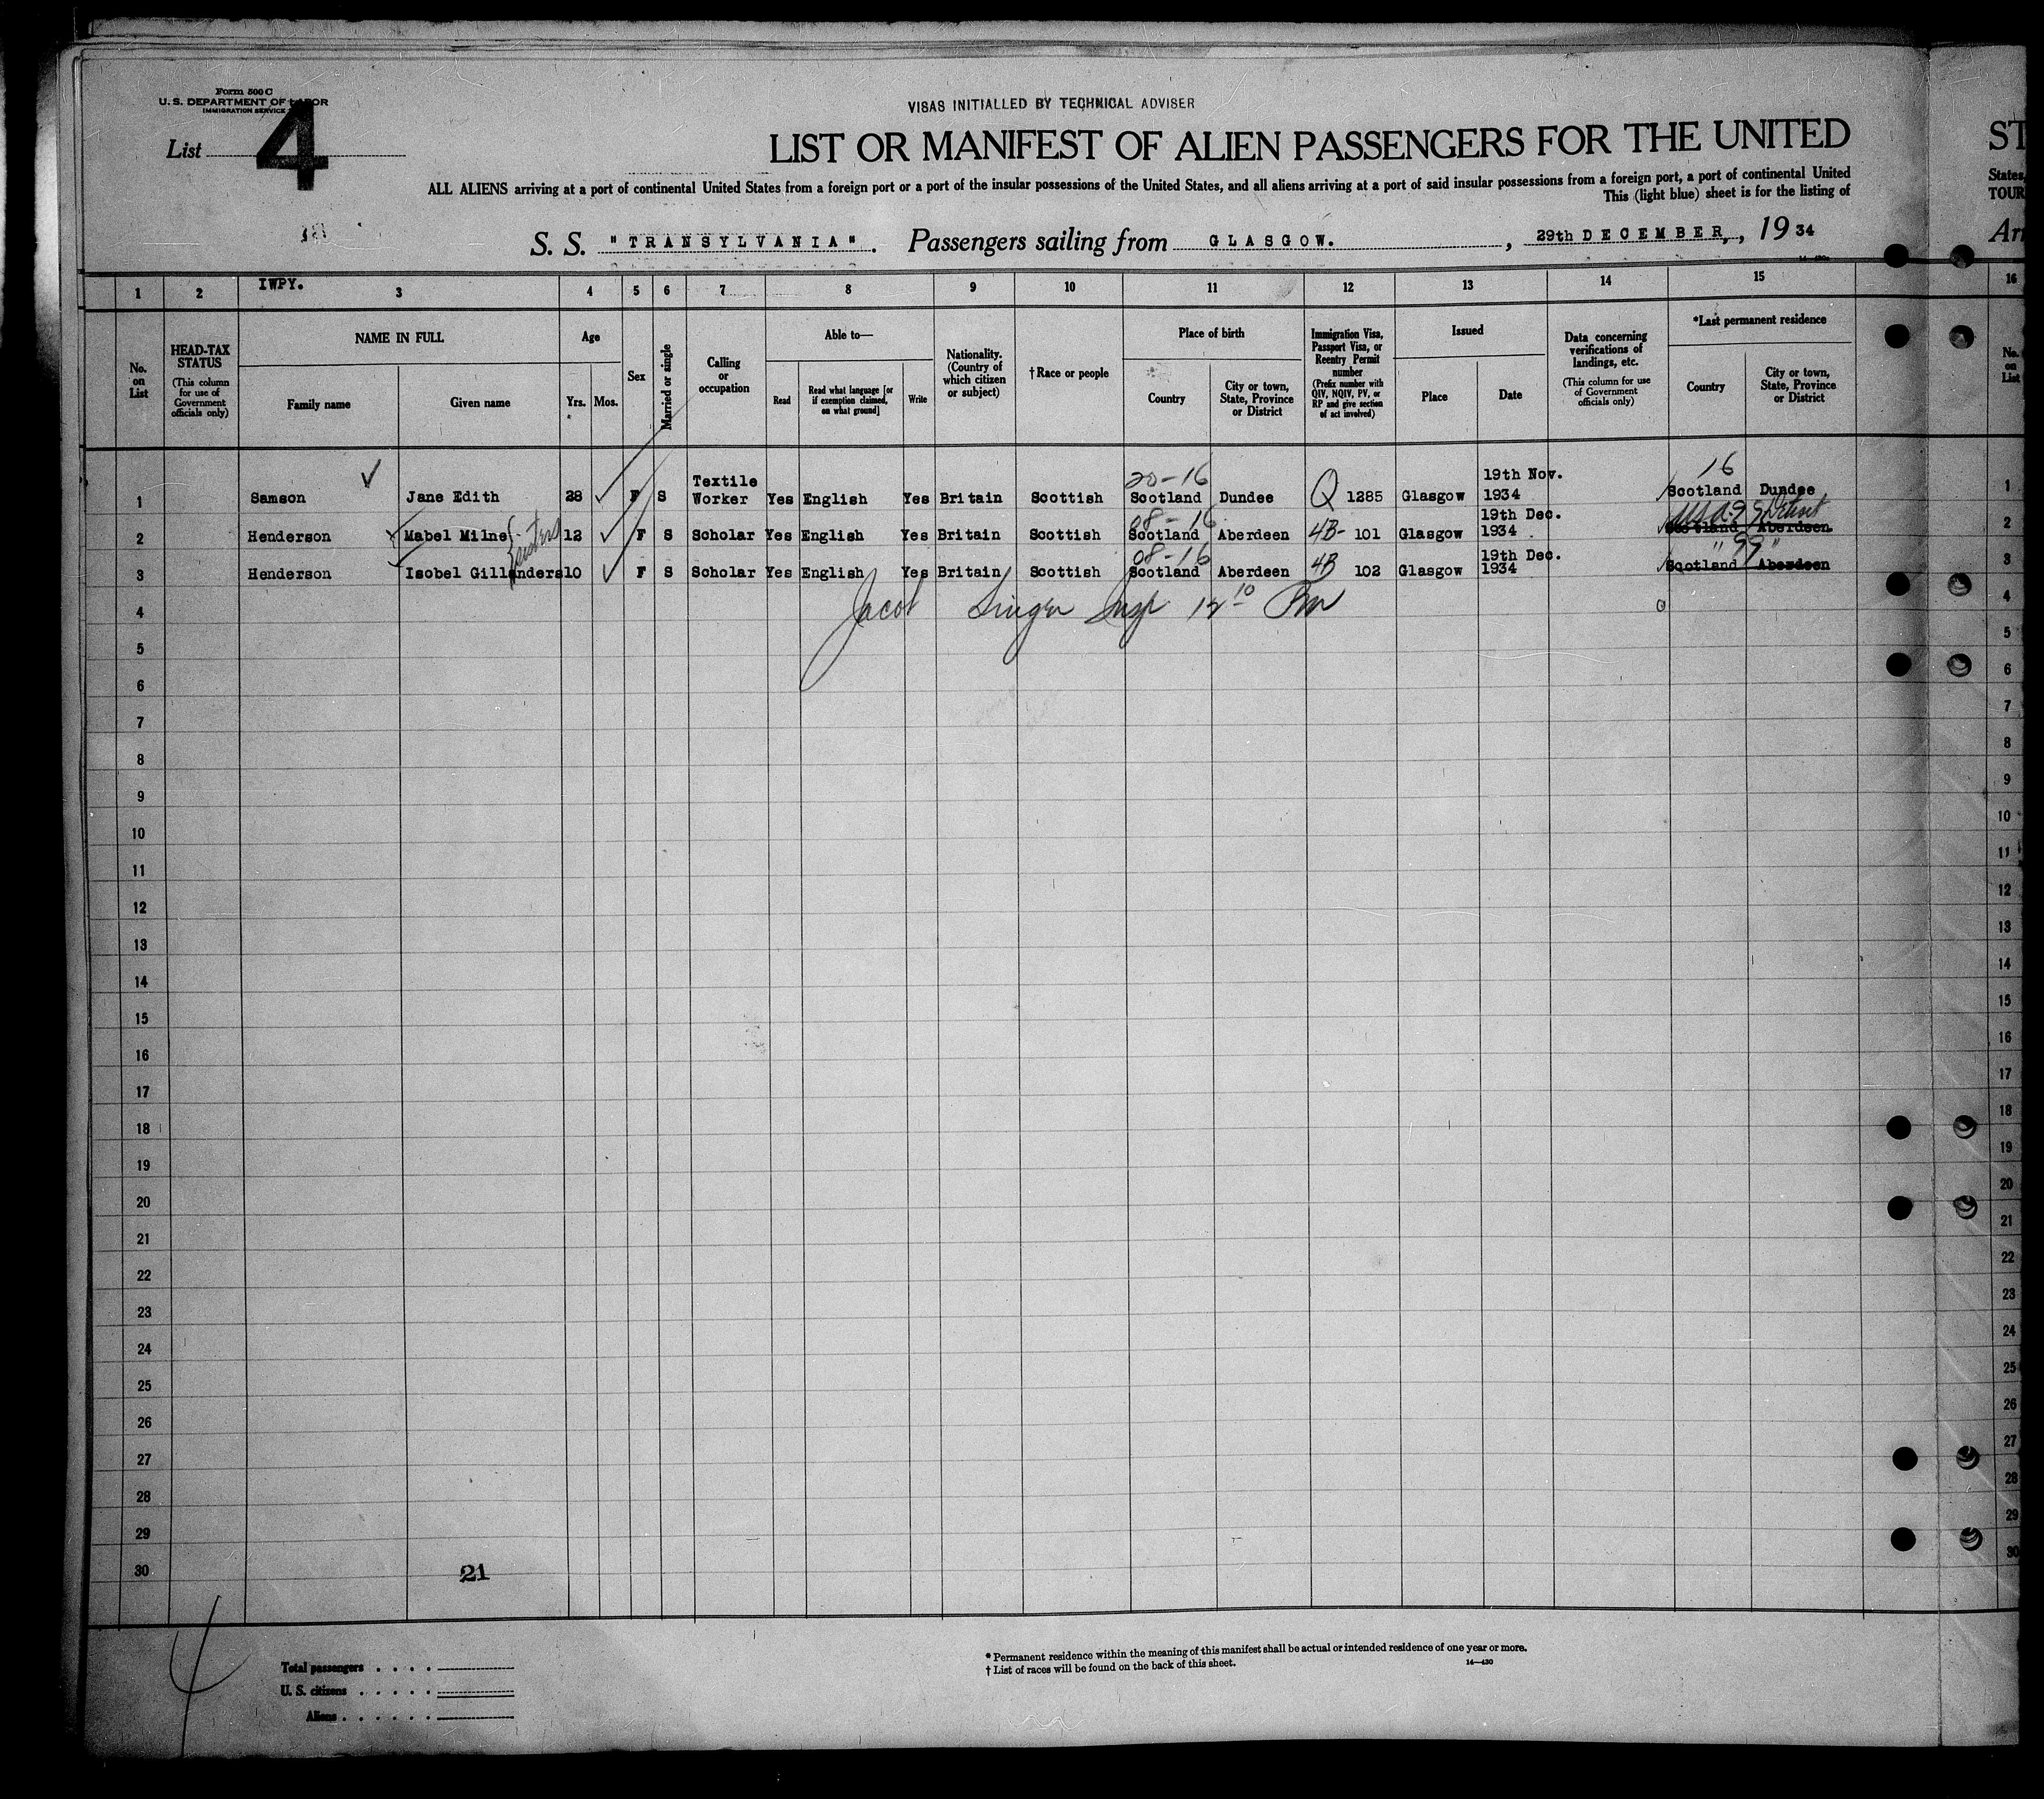 Form 500 C
U. S. DEPARTMENT OF LABOR
IMMIGRATION SERVICE
List 4
VISAS INITIALLED BY TECHNICAL ADVISER
LIST OR MANIFEST OF ALIEN PASSENGERS FOR THE UNITED
ST
ALL ALIENS arriving at a port of continental United States from a foreign port or a port of the insular possessions of the United States, and all aliens arriving at a port of said insular possessions from a foreign port, a port of continental United
States,
This (light blue) sheet is for the listing of
TOUR
S. S. "TRANSYLVANIA". Passengers sailing from GLASGOW. , 29th DECEMBER, , 19 34
Arr
IWPY.
1 2 3 4 5 6 7 8 9 10 11 12 13 14 15 16
No. on List
HEAD-TAX STATUS (This column for use of Government officials only)
NAME IN FULL
Family name Given name
Age
Yrs. Mos.
Sex
Married or single
Calling or occupation
Able to—
Read Read what language [or if exemption claimed, on what ground] Write
Nationality. (Country of which citizen or subject)
†Race or people
Place of birth
Country City or town, State, Province or District
Immigration Visa, Passport Visa, or Reentry Permit number (Prefix number with QIV, NQIV, PV, or RP and give section of act involved)
Issued
Place Date
Data concerning verifications of landings, etc. (This column for use of Government officials only)
*Last permanent residence
Country City or town, State, Province or District
No. on List
20-16 16
1 Samson Jane Edith 28 F S Textile Worker Yes English Yes Britain Scottish Scotland Dundee Q 1285 Glasgow 19th Nov. 1934 Scotland Dundee 1
08-16 USA 99 Detroit
2 Henderson Mabel Milne sisters 12 F S Scholar Yes English Yes Britain Scottish Scotland Aberdeen 4B- 101 Glasgow 19th Dec. 1934 Scotland Aberdeen 2
08-16 " 99 "
3 Henderson Isobel Gillanders 10 F S Scholar Yes English Yes Britain Scottish Scotland Aberdeen 4B 102 Glasgow 19th Dec. 1934 Scotland Aberdeen 3
4 Jacob Singer Insp 12 10 Pm 4
5 5
6 6
7 7
8 8
9 9
10 10
11 11
12 12
13 13
14 14
15 15
16 16
17 17
18 18
19 19
20 20
21 21
22 22
23 23
24 24
25 25
26 26
27 27
28 28
29 29
30 21 30
4
Total passengers . . . .
U. S. citizens . . . . .
Aliens . . . . . .
* Permanent residence within the meaning of this manifest shall be actual or intended residence of one year or more.
† List of races will be found on the back of this sheet.
14—430